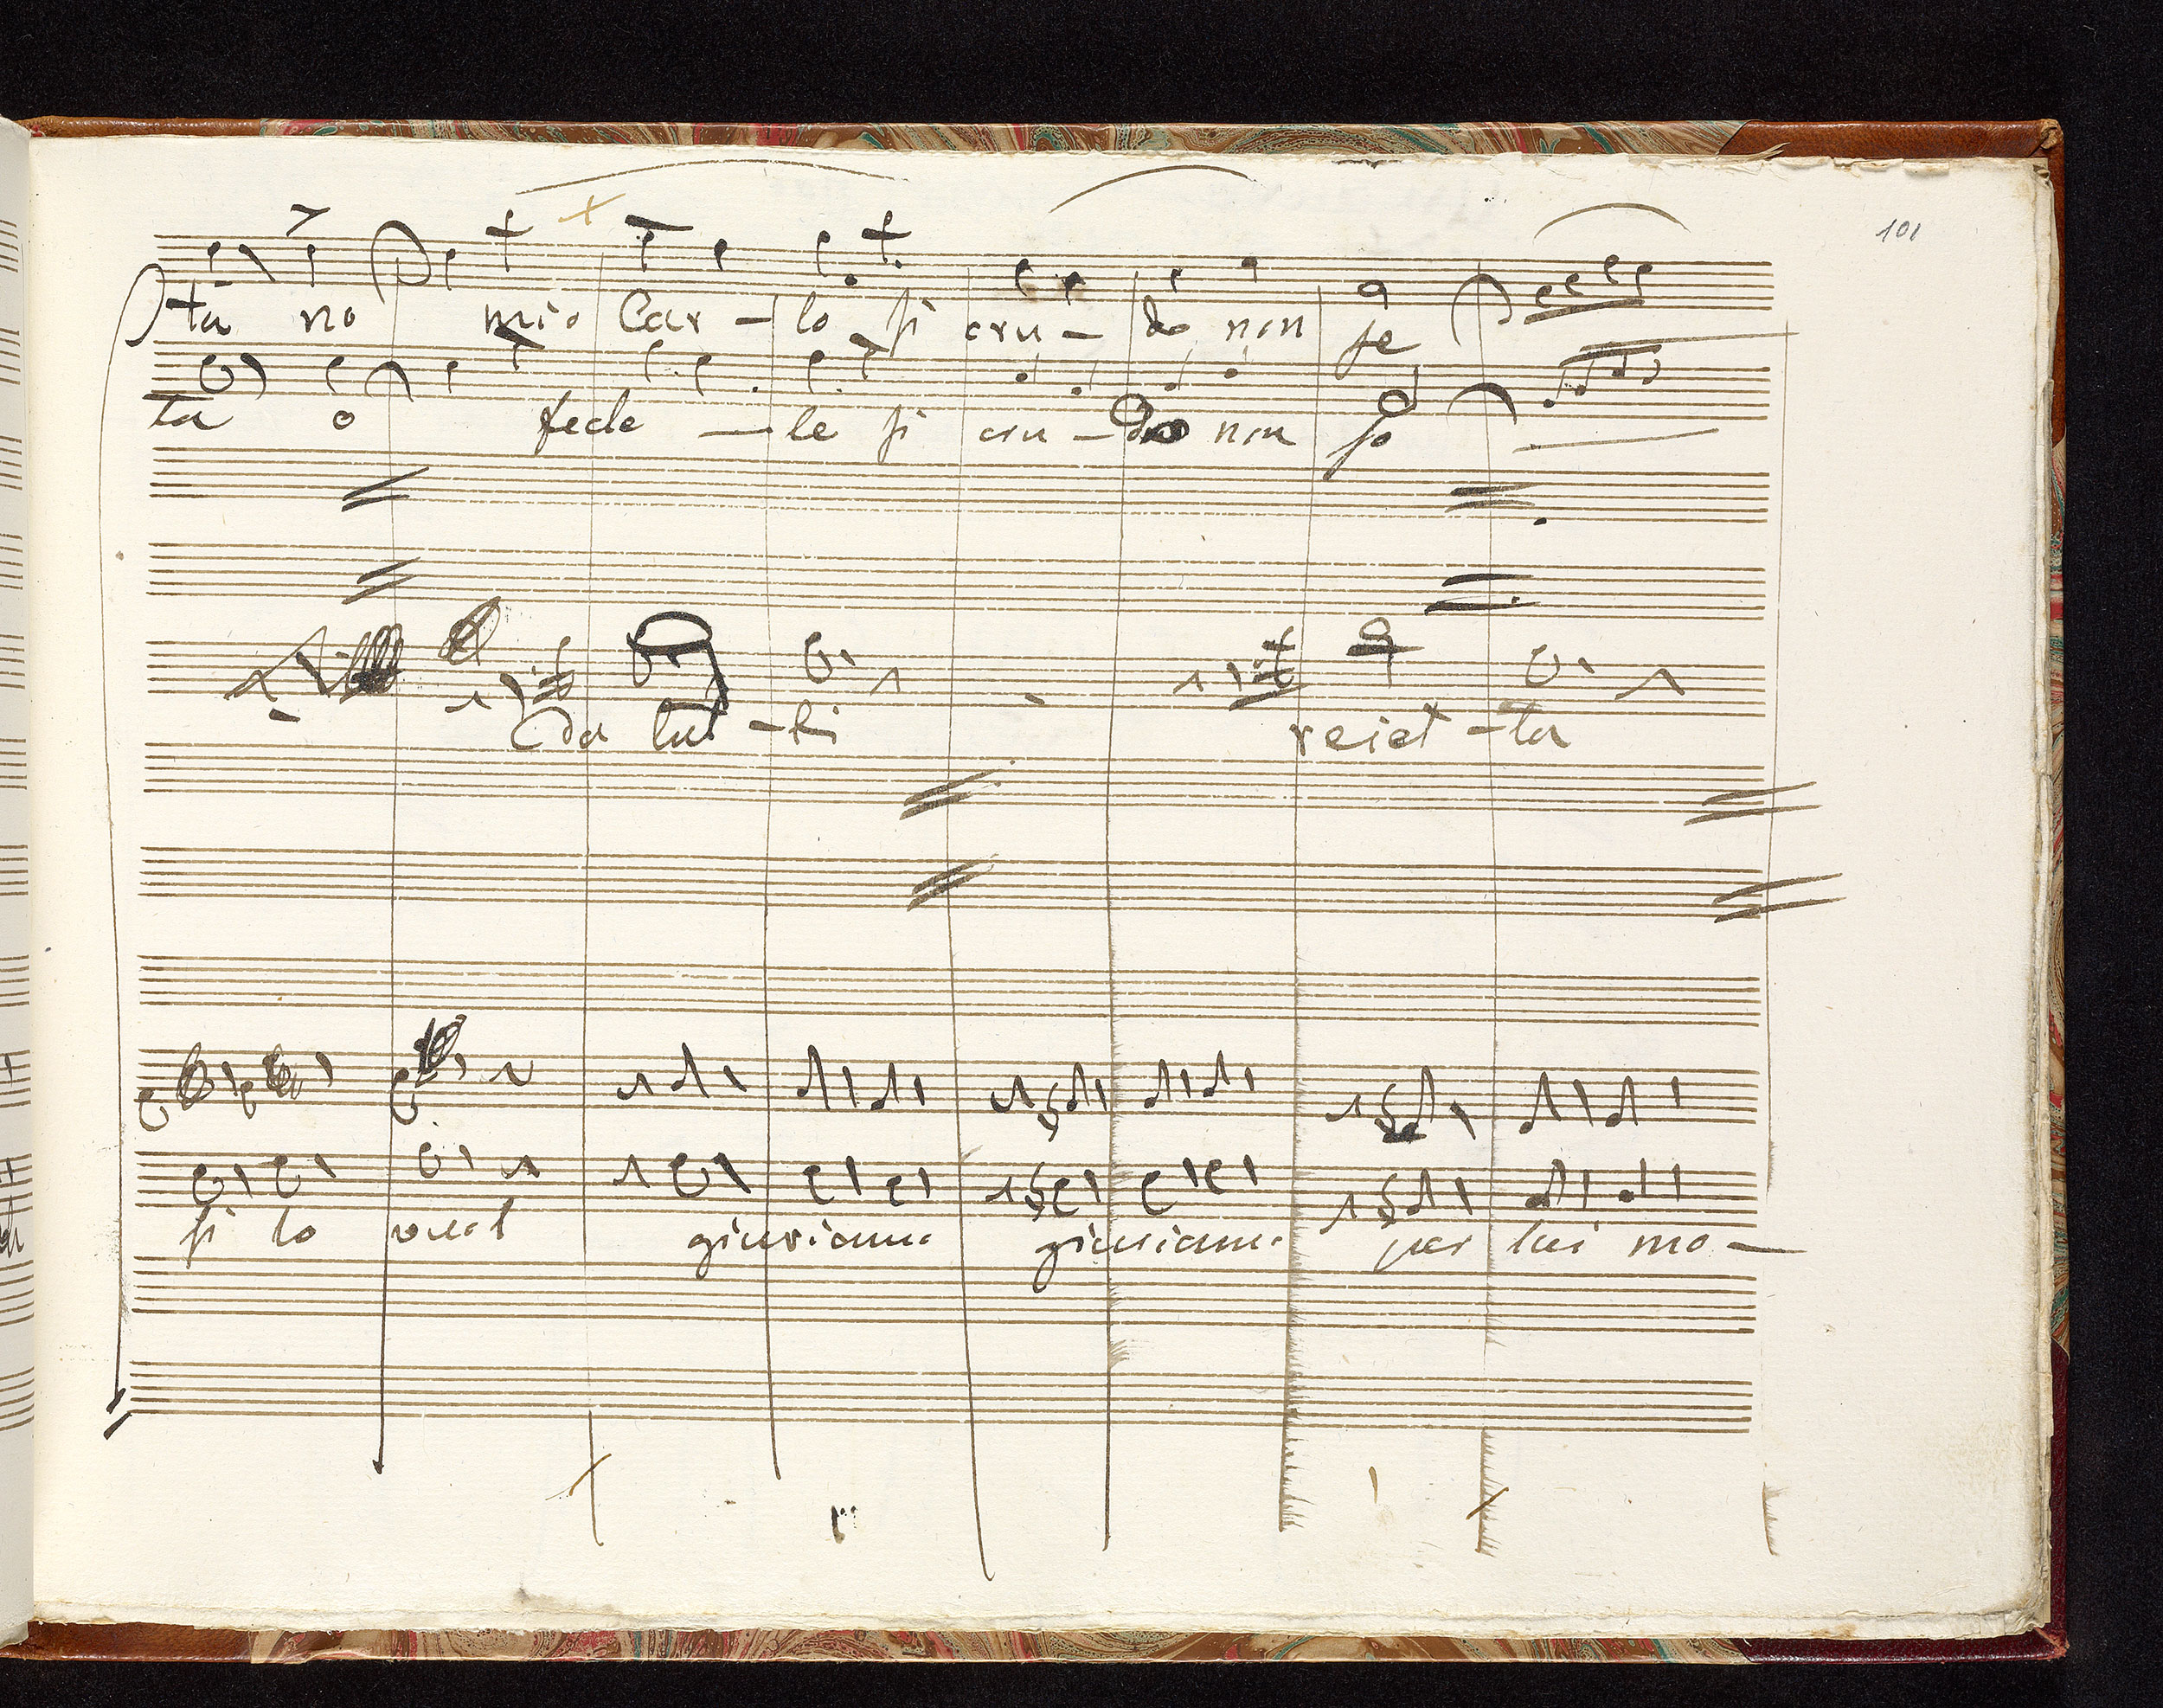 101
tà no mio Car - lo si cru - do non se
ta o fede - le si cru - do non so
da tut - ti reiet - ta
si lo vuol giuriamo giuriamo per lui mo -